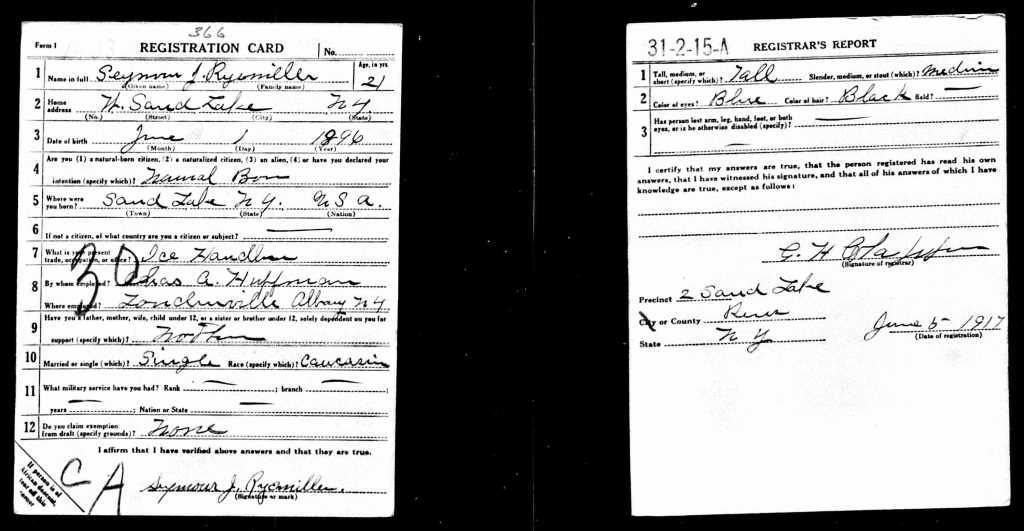 366
Form 1 REGISTRATION CARD No.
1 Name in full Seymour J. Rycmiller Age, in yrs. 21
(Given name) (Family name)
2 Home address W. Sand Lake N Y
(No.) (Street) (City) (State)
3 Date of birth June 1 1896
(Month) (Day) (Year)
4 Are you (1) a natural-born citizen, (2) a naturalized citizen, (3) an alien, (4) or have you declared your
intention (specify which)? Natural Born
5 Where were you born? Sand Lake N Y. U S A.
(Town) (State) (Nation)
6 If not a citizen, of what country are you a citizen or subject?
7 What is your present trade, occupation, or office? Ice Handler
30
8 By whom employed? Chas A. Huffman
Where employed? Albany N Y
9 Have you a father, mother, wife, child under 12, or a sister or brother under 12, solely dependent on you for
support (specify which)? Mother
10 Married or single (which)? Single Race (specify which)? Caucasin
11 What military service have you had? Rank ; branch ;
years ; Nation or State
12 Do you claim exemption from draft (specify grounds)? None
I affirm that I have verified above answers and that they are true.
If person is of African descent,
C A
Seymour J. Rycmiller.
(Signature or mark)
31-2-15-A REGISTRAR'S REPORT
1 Tall, medium, or short (specify which)? Tall Slender, medium, or stout (which)? Medium
2 Color of eyes? Blue Color of hair? Black Bald?
3 Has person lost arm, leg, hand, foot, or both
eyes, or is he otherwise disabled (specify)?
I certify that my answers are true, that the person registered has read his own
answers, that I have witnessed his signature, and that all of his answers of which I have
knowledge are true, except as follows:
G. H
(Signature of registrar)
Precinct 2 Sand Lake
City or County Rens
State N Y June 5 1917
(Date of registration)